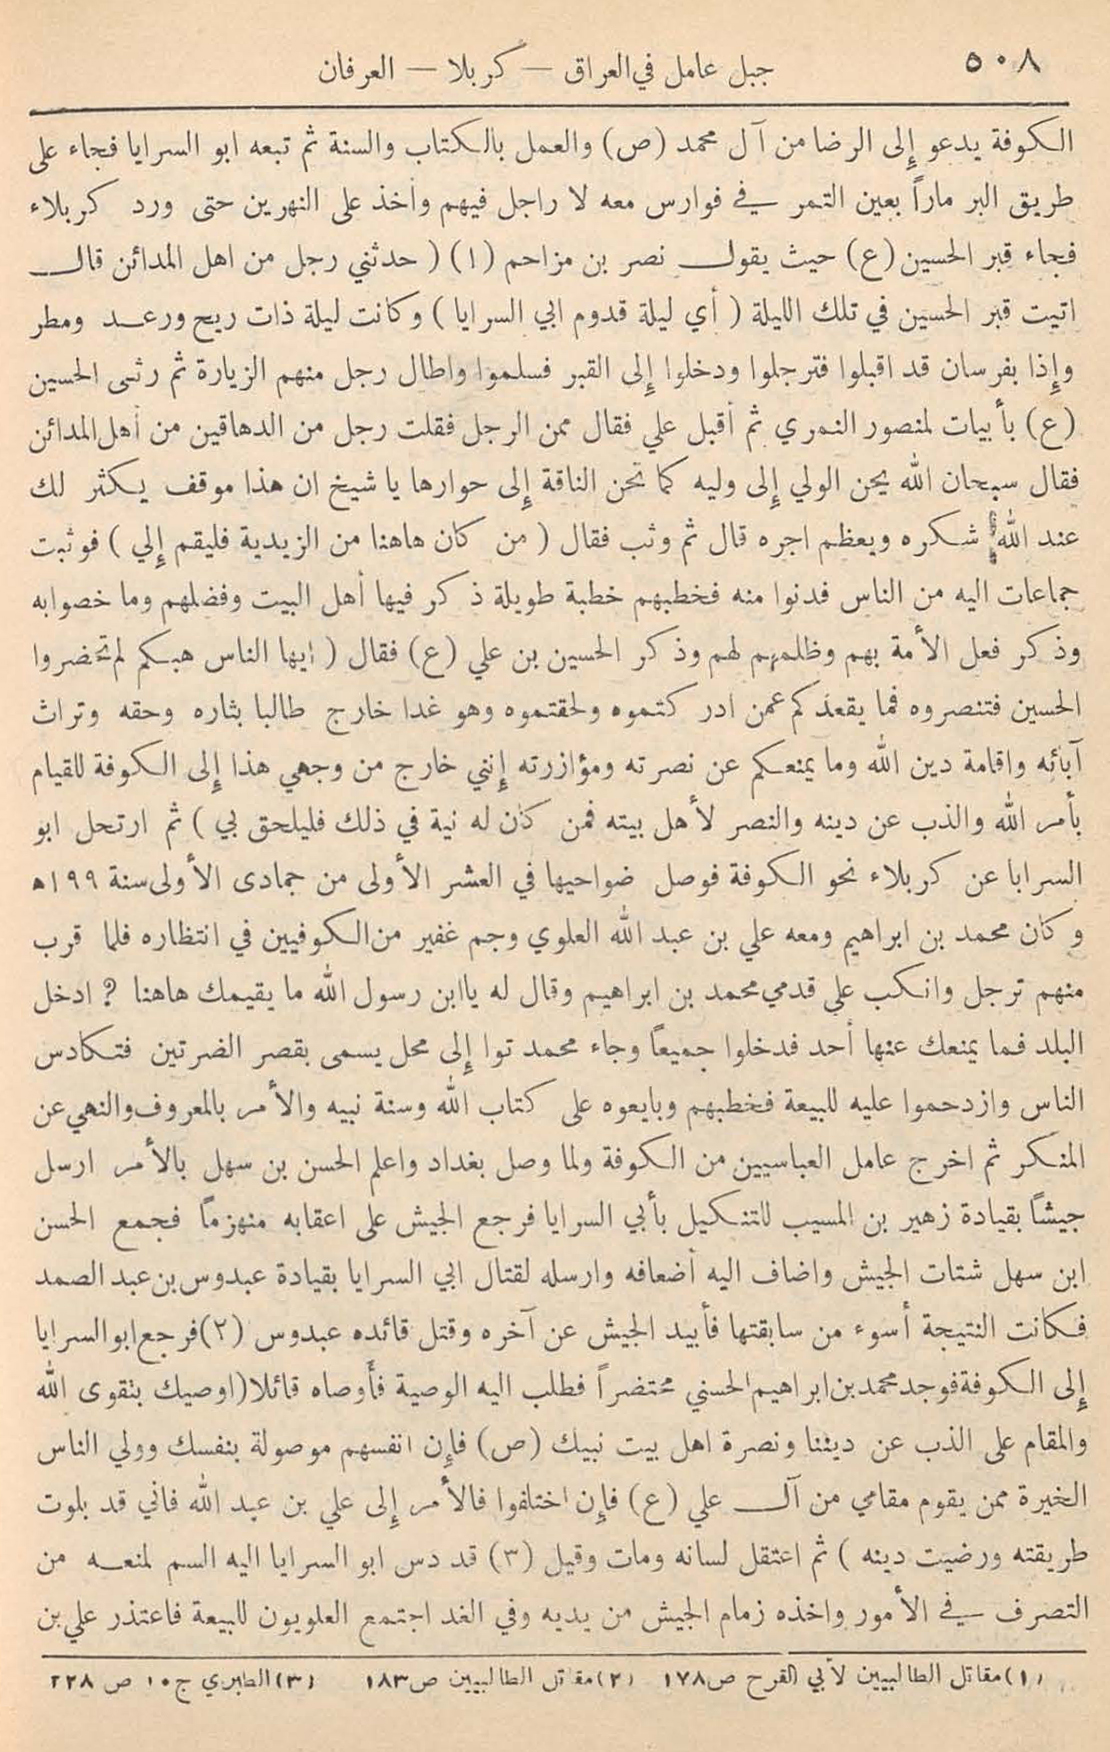 ٥٠٨ جبل عامل في العراق — كربلا — العرفان
الكوفة يدعو إلى الرضا من آل محمد (ص) والعمل بالكتاب والسنة ثم تبعه ابو السرايا فجاء على
طريق البر ماراً بعين التمر في فوارس معه لا راجل فيهم وأخذ على النهرين حتى ورد كربلاء
فجاء قبر الحسين (ع) حيث يقول نصر بن مزاحم (١) ( حدثني رجل من اهل المدائن قال
اتيت قبر الحسين في تلك الليلة ( أي ليلة قدوم ابي السرايا ) وكانت ليلة ذات ريح ورعد ومطر
وإذا بفرسان قد اقبلوا فترجلوا ودخلوا إلى القبر فسلموا واطال رجل منهم الزيارة ثم رثى الحسين
(ع) بأبيات لمنصور النمري ثم أقبل علي فقال ممن الرجل فقلت رجل من الدهاقين من أهل المدائن
فقال سبحان الله يحن الولي إلى وليه كما تحن الناقة إلى حوارها يا شيخ ان هذا موقف يكثر لك
عند الله شكره ويعظم اجره قال ثم وثب فقال ( من كان هاهنا من الزيدية فليقم إلي ) فوثبت
جماعات اليه من الناس فدنوا منه فخطبهم خطبة طويلة ذكر فيها أهل البيت وفضلهم وما خصوا به
وذكر فعل الأمة بهم وظلمهم لهم وذكر الحسين بن علي (ع) فقال ( ايها الناس هبكم لم تحضروا
الحسين فتنصروه فما يقعدكم عمن ادركتموه ولحقتموه وهو غدا خارج طالبا بثاره وحقه وتراث
آبائه واقامة دين الله وما يمنعكم عن نصرته ومؤازرته إنني خارج من وجهي هذا إلى الكوفة للقيام
بأمر الله والذب عن دينه والنصر لأهل بيته فمن كان له نية في ذلك فليلحق بي ) ثم ارتحل ابو
السرايا عن كربلاء نحو الكوفة فوصل ضواحيها في العشر الأولى من جمادى الأولى سنة ١٩٩ ه
وكان محمد بن ابراهيم ومعه علي بن عبد الله العلوي وجم غفير من الكوفيين في انتظاره فلما قرب
منهم ترجل وانكب على قدمي محمد بن ابراهيم وقال له يا ابن رسول الله ما يقيمك هاهنا ? ادخل
البلد فما يمنعك عنها أحد فدخلوا جميعاً وجاء محمد توا إلى محل يسمى بقصر الضرتين فتكادس
الناس وازدحموا عليه للبيعة فخطبهم وبايعوه على كتاب الله وسنة نبيه والأمر بالمعروف والنهي عن
المنكر ثم اخرج عامل العباسيين من الكوفة ولما وصل بغداد واعلم الحسن بن سهل بالأمر ارسل
جيشاً بقيادة زهير بن المسيب للتنكيل بأبي السرايا فرجع الجيش على اعقابه منهزماً فجمع الحسن
ابن سهل شتات الجيش واضاف اليه أضعافه وارسله لقتال ابي السرايا بقيادة عبدوس بن عبد الصمد
فكانت النتيجة أسوء من سابقتها فأبيد الجيش عن آخره وقتل قائده عبدوس (٢) فرجع ابو السرايا
إلى الكوفة فوجد محمد بن ابراهيم الحسني محتضراً فطلب اليه الوصية فأوصاه قائلا (اوصيك بتقوى الله
والمقام على الذب عن ديننا ونصرة اهل بيت نبيك (ص) فإن انفسهم موصولة بنفسك وولي الناس
الخيرة ممن يقوم مقامي من آل علي (ع) فإن اختلفوا فالأمر إلى علي بن عبد الله فاني قد بلوت
طريقته ورضيت دينه ) ثم اعتقل لسانه ومات وقيل (٣) قد دس ابو السرايا اليه السم لمنعه من
التصرف في الأمور واخذه زمام الجيش من يديه وفي الغد اجتمع العلويون للبيعة فاعتذر علي بن
(١) مقاتل الطالبيين لأبي الفرج ص١٧٨ (٢) مقاتل الطالبيين ص١٨٣ (٣) الطبري ج١٠ ص ٢٢٨